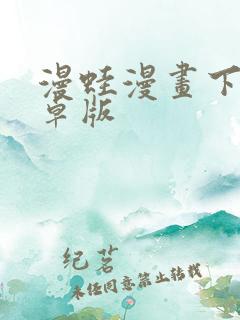 漫蛙漫畫下
卓版
纪茗
未经同意禁止转载